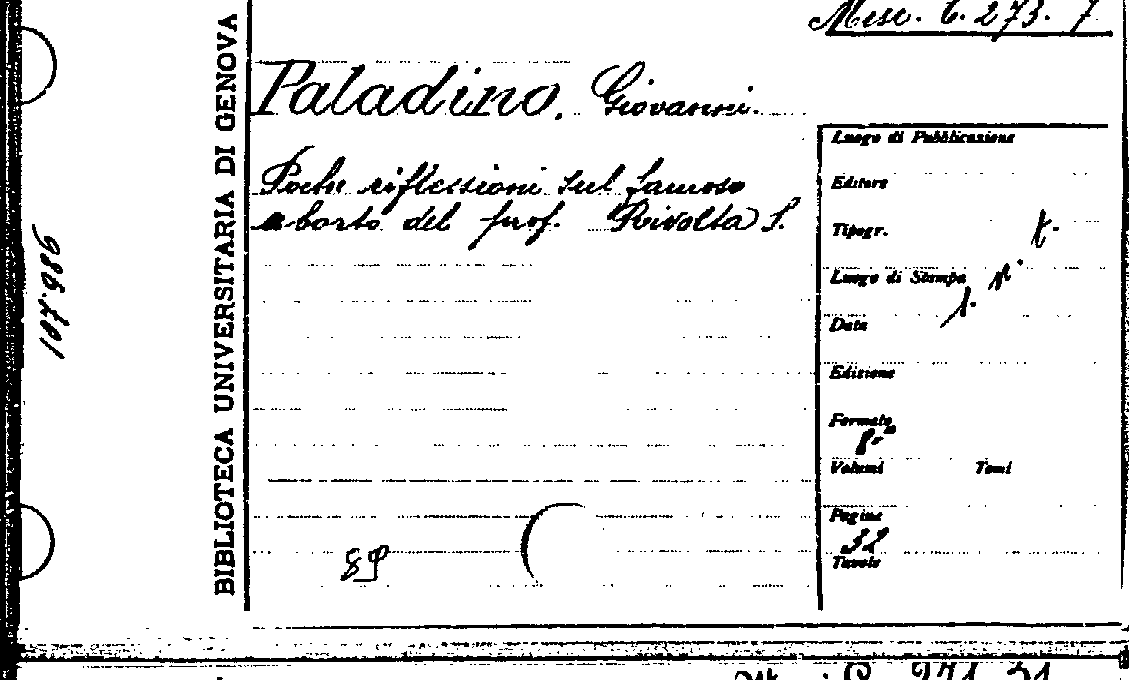 Misc. C. 273. 7
BIBLIOTECA UNIVERSITARIA DI GENOVA
Paladino, Giovanni.
Poche riflessioni sul famoso
aborto del prof. Rivolta S.
Luogo di Pubblicazione
Editore
Tipogr. t.
Luogo di Stampa n.
Data s.
Edizione
Formato
8°
Volumi Tomi
Pagine
32
Tavole
107.986